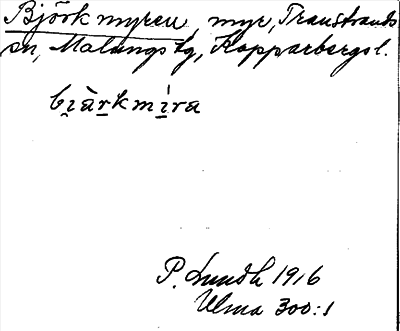 Björkmyren, myr, Transtrands
sn, Malungs tg, Kopparbergs l.
bi̯àr̲kmí̲ra
P. Lundh 1916
Ulma 300:1